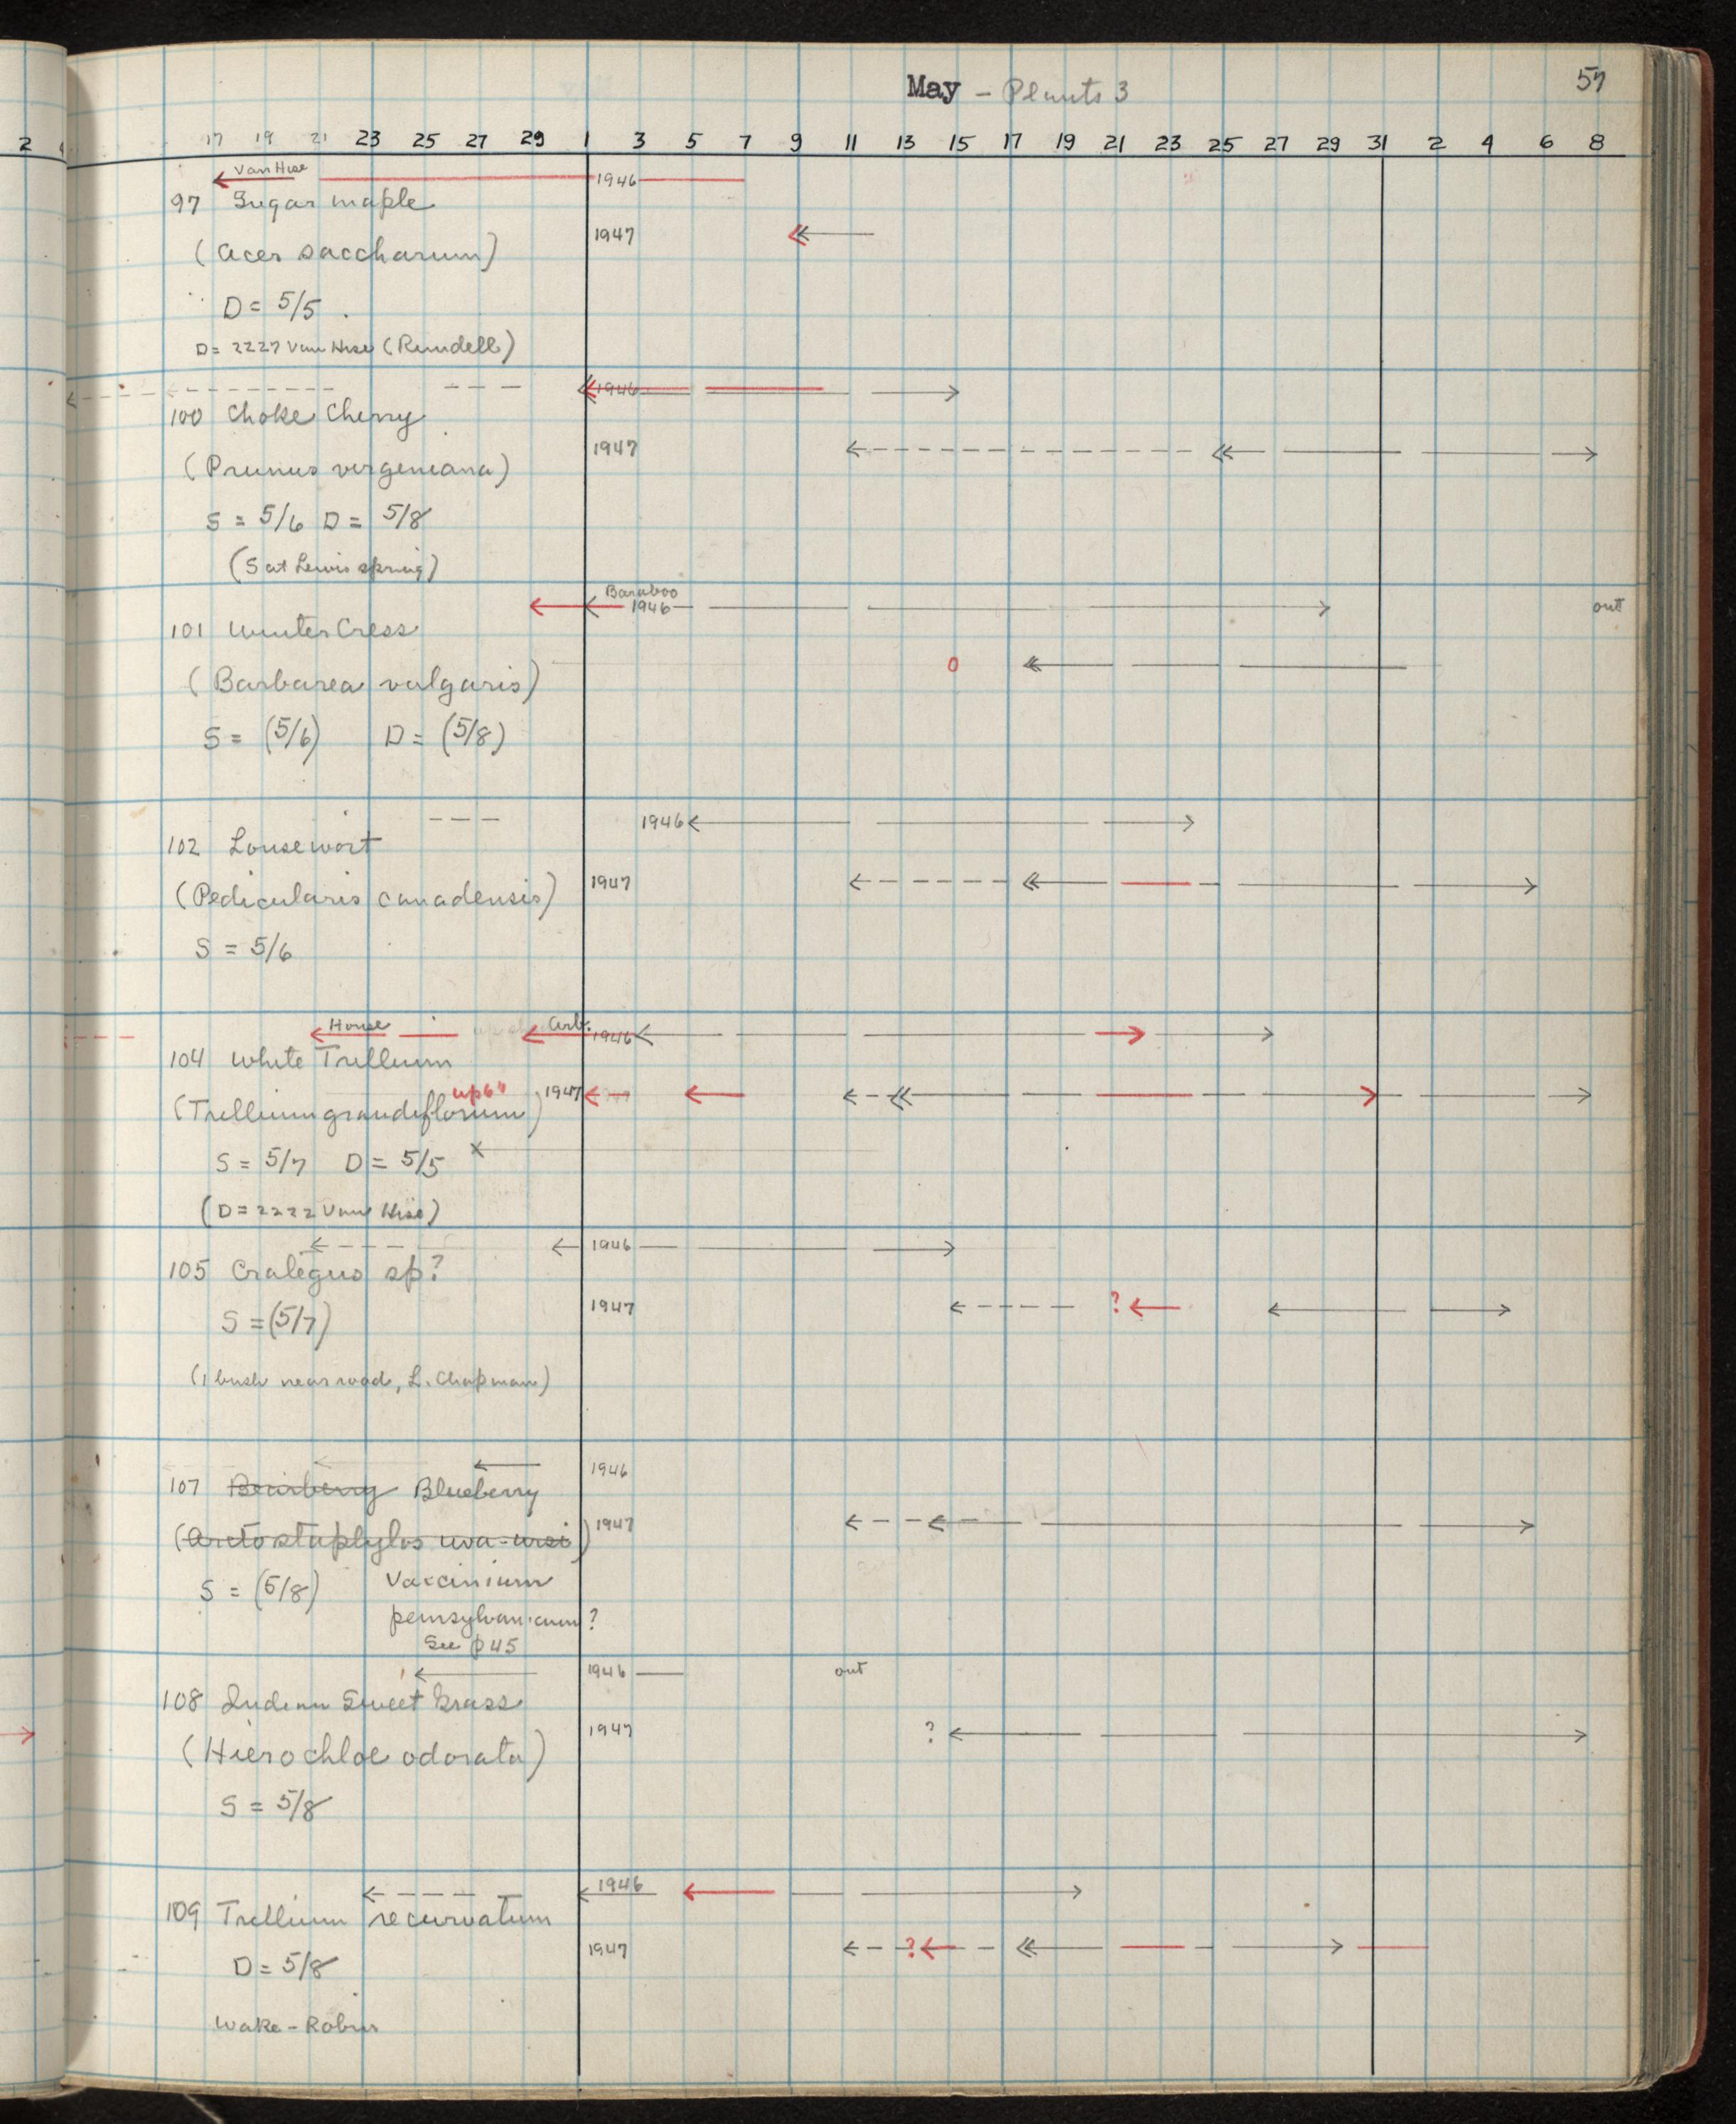 May - Plants 3
57
2
17 19 21 23 25 27 29 1 3 5 7 9 11 13 15 17 19 21 23 25 27 29 31 2 4 6 8
Van Hise
1946
97 Sugar maple
1947
(Acer saccharum)
D = 5/5
D = 2227 Van Hise (Rundell)
1946
100 Choke Cherry
1947
(Prunus virgeniana)
S = 5/6 D = 5/8
(S at Lewis spring)
Baraboo
1946
out
101 Winter Cress
0
(Barbarea vulgaris)
S = (5/6) D = (5/8)
1946
102 Lousewort
1947
(Pedicularis canadensis)
S = 5/6
House
Arb.
1946
104 White Trillium
up 6"
1947
(Trillium grandiflorum)
S = 5/7 D = 5/5 x
(D = 2222 Van Hise)
1946
105 Crategus sp?
1947
?
S = (5/7)
(1 bush near road, L. Chapman)
1946
107 Bearberry Blueberry
(Arctostaphylos uva-ursi)
1947
S = (5/8) Vaccinium
pensylvanicum?
See p 45
1946
out
108 Indian Sweet Grass
1947
?
(Hierochloe odorata)
S = 5/8
1946
109 Trillium recurvatum
1947
?
D = 5/8
Wake-Robin